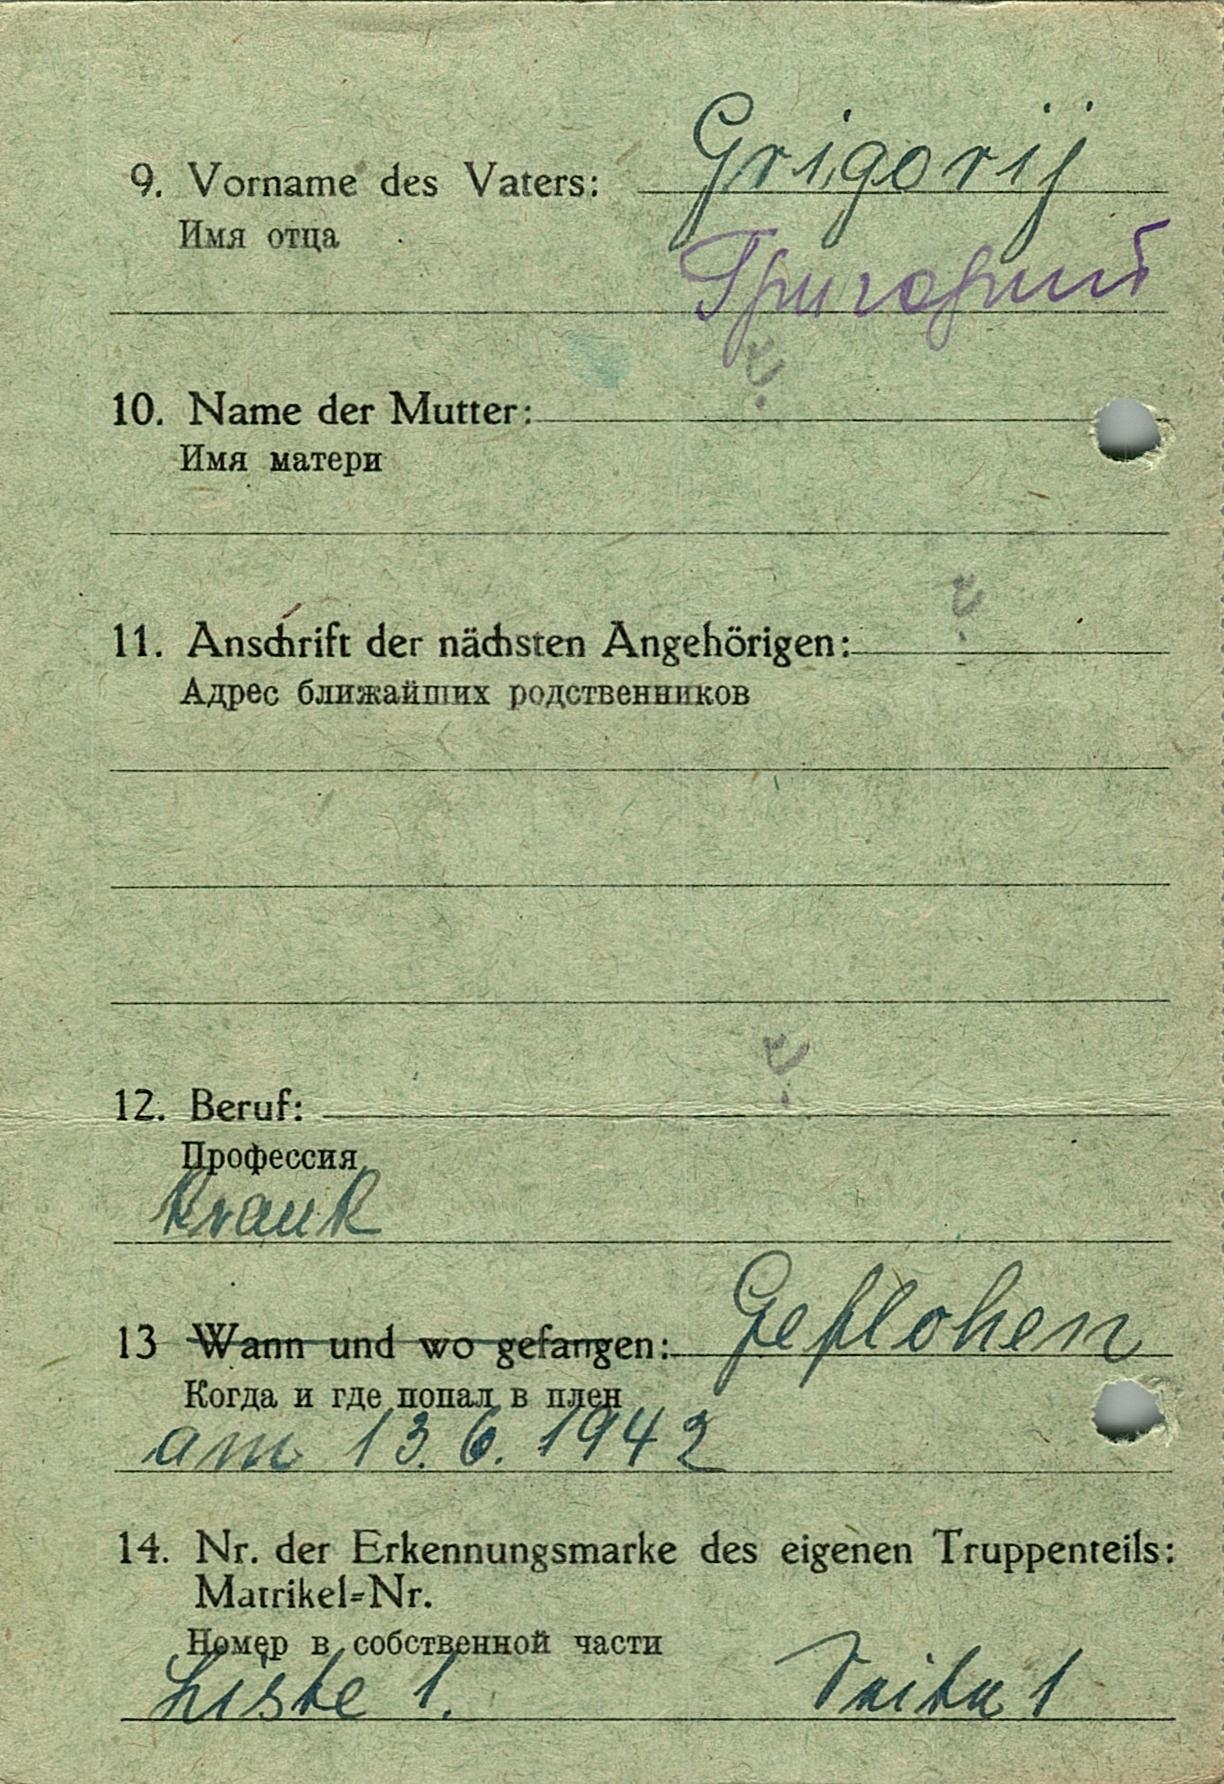 9. Vorname des Vaters: Grigorij
Имя отца Григорий
?
10. Name der Mutter:
Имя матери
?
11. Anschrift der nächsten Angehörigen:
Адрес ближайших родственников
?
12. Beruf:
Профессия
Krank
13 Wann und wo gefangen: Geflohen
Когда и где попал в плен
am 13. 6. 1942
14. Nr. der Erkennungsmarke des eigenen Truppenteils:
Matrikel=Nr.
Номер в собственной части
Liste 1. Seite 1